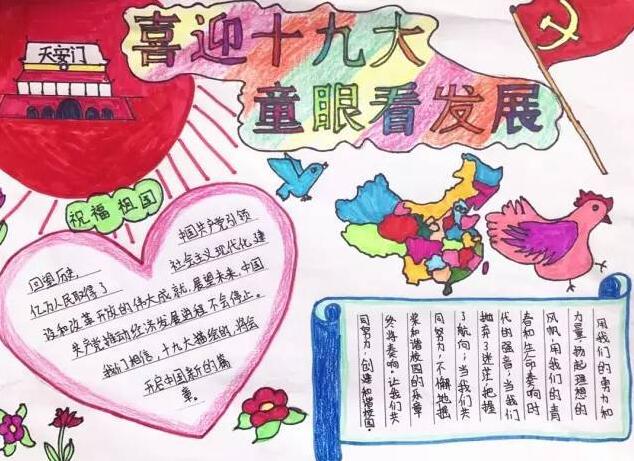 天安门
喜迎十九大
童眼看发展
祝福祖国
回望历史,
中国共产党引领
亿万人民取得了
社会主义现代化建
设和改革开放的伟大成就,展望未来,中国
共产党推动经济发展前程不会停止。
我们相信,十九大描绘的,将会
开启中国新的篇
章。
用我们的勇力和
力量,扬起理想的
风帆,用我们的青
春和生命奏响时
代的强音;当我们
抛弃了迷茫,把握
了航向;当我们共
同努力,不懈地
荣和谐校园的乐章
终将奏响。让我们共
同努力,创建和谐校园。